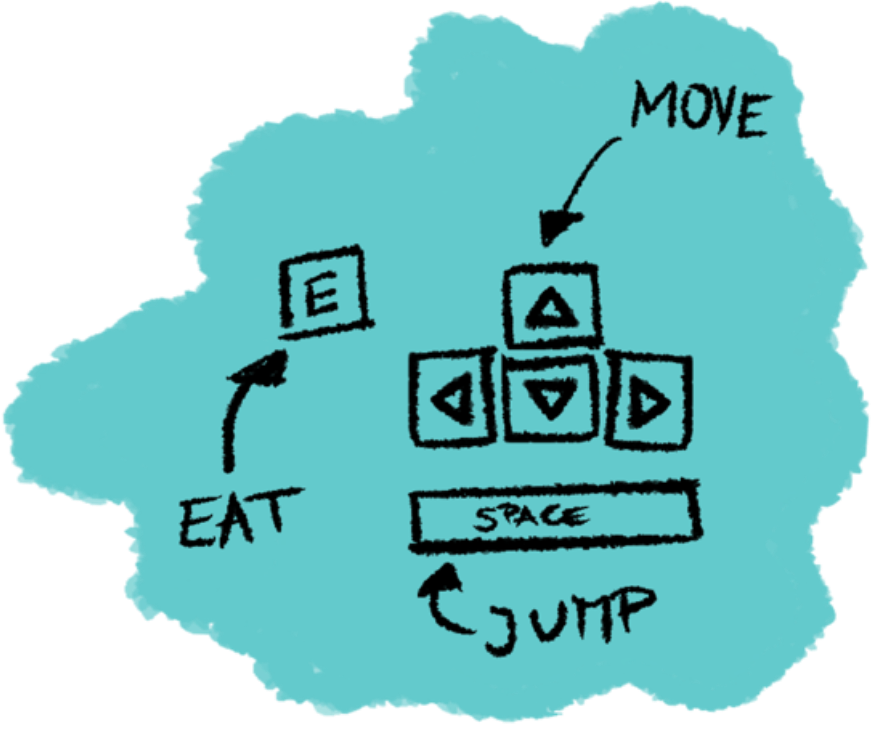 MOVE
E
EAT
SPACE
JUMP